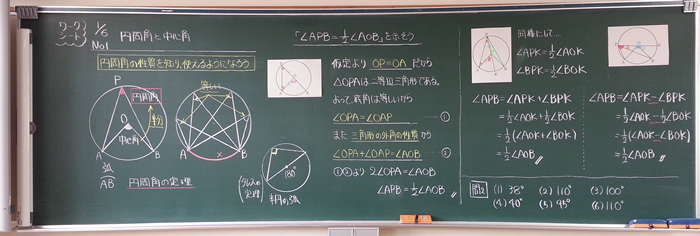 ワークシート 1/6
No1
円周角と中心角
円周角の性質を知り、使えるようになろう
P
円周角
半分
O
中心角
A
B
弧
AB
円周角の定理
等しい
A
×
B
180°
半円の弧
「∠APB=½∠AOB」を示そう
仮定より OP=OA だから
△OPAは二等辺三角形である。
よって、底角は等しいから
∠OPA=∠OAP ―①
また 三角形の外角の性質から
∠OPA+∠OAP=∠AOB ―②
①②より 2∠OPA=∠AOB
∠APB=½∠AOB 〃
同様にして…
∠APK=½∠AOK
∠BPK=½∠BOK
∠APB=∠APK+∠BPK
=½∠AOK+½∠BOK
=½(∠AOK+∠BOK)
=½∠AOB〃
∠APB=∠APK-∠BPK
=½∠AOK-½∠BOK
=½(∠AOK-∠BOK)
=½∠AOB〃
問2
(1) 38° (2) 110° (3) 100°
(4) 40° (5) 95° (6) 110°